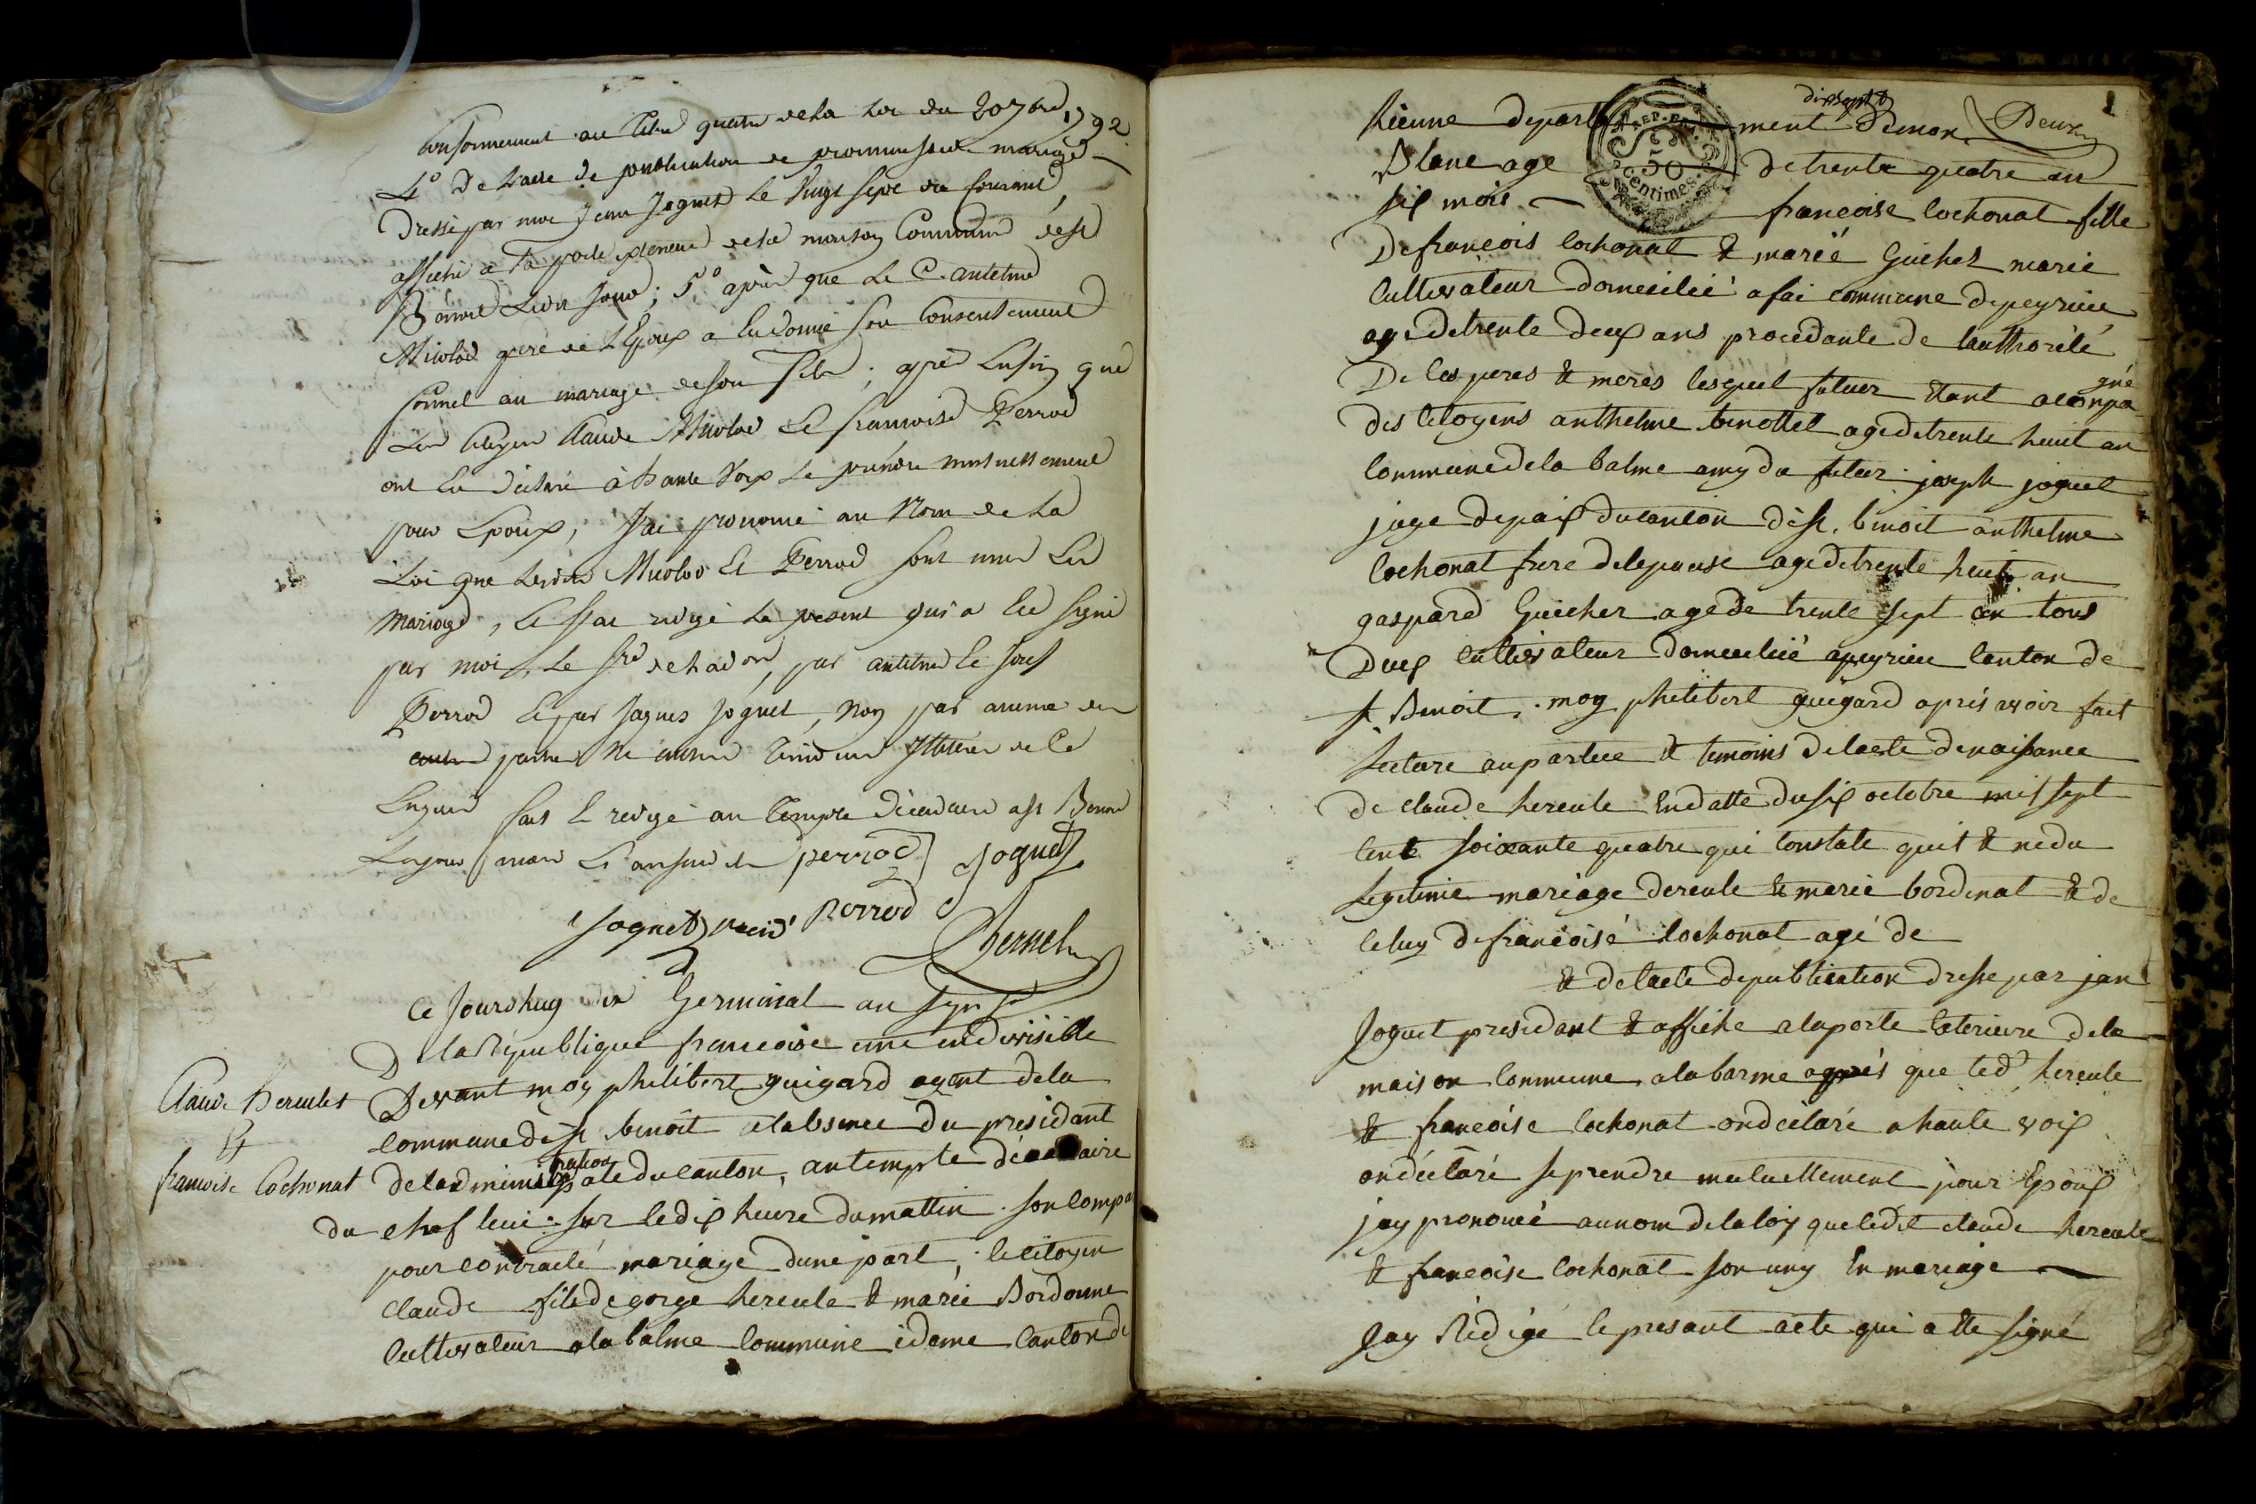 Conformement au titre quatre de la Loi du 20 7bre 1792
4° De l'acte de publication de promesse de mariage
Dressé par moi Jean Jognet le Vingt sept du Courant
affiché à la porte exterieure de la maison Commune de St
Benoit Led. Jour; 5° après que Le C. antelme
Micolod pere de l'Epoux a eu donné son Consentement
formel au mariage de son fils; après Enfin que
Les Citoyens Claude Micolod Et francoise Perrod
ont Eu déclaré à haute Voix Se prendre mutuellement
pour Epoux, J'ai prononcé au Nom de La
Loi que Lesdits Micolod Et Perrod sont unis En
Mariage, Et J'ai redigé Le present qui a Eté Signé
par moi, Le Sre de l'adon, par antelme Et Josef
Perrod Et par Jaques Jognet, Non par aucune des
autres parties Ni autres Témoins Illiterés de Ce
Enquis fait Et redigé au Temple Décadaire a St Benoit
Les jour mois Et an susdits perrod Jognet
Jognet perrod Bernel
Ce Jourdhuy dix Germinal an sept
De la République francoise une indivisible
Claude Hercules Devant moy philibert guigard agent de la
Et commune de St benoit alabsence du presidant
francoise Cochonat de ladministration
pale du canton, au temple décadaire
du chef lieu sur le dix heure du mattin son compa
pour contracté mariage dune part, le citoyen
claude fils de gorge hercule & marie Bordonne
Cultivateur a la balme commune idome Canton de
1
hienne departement Dumon Deux
dixsept
REP. FRA.
50
centimes
Blanc age de trente quatre an
six mois francoise cochonat fille
De francois cochonat & marie Guichet marie
Cultivateur domecilié a fai commune de peyrieu
age de trente deux ans procedante de lauthorité
De ces peres & meres lesquel futuer étant acompa
gné
des citoyens anthelme tenottet age de trente heuit an
Commune de la balme amy du futur joseph joguet
juge de paix du canton de St. benoit anthelme
Cochonat frere de lepouse age de trente heuit an
gaspard Guicher age de trente sept an tous
Deux cultivateur domecilié a peyrieu Canton de
St Benoit, moy philibert guigard aprés avoir fait
Lecture au partiee & temoins de lacte de naissance
de claude hercule En datte du six octobre mil sept
cent soixante quatre qui constate quil & né du
Legitime mariage dercule & marie bordenat & de
Celuy de francoise Cochonat agé de
& de lacte de publication dresse par jan
Joguet presidant & affiche a la porte Exterieure de la
maison Commune a la barme aprés que led. hercule
& francoise Cochonat on déclaré a haute voix
on déclaré se prendre mutuellement pour Epoux
jay prononcé au nom de la loy que ledit claude hercule
& francoise Cochonat son uny En mariage
Jay Rédigé le present acte qui a été signé